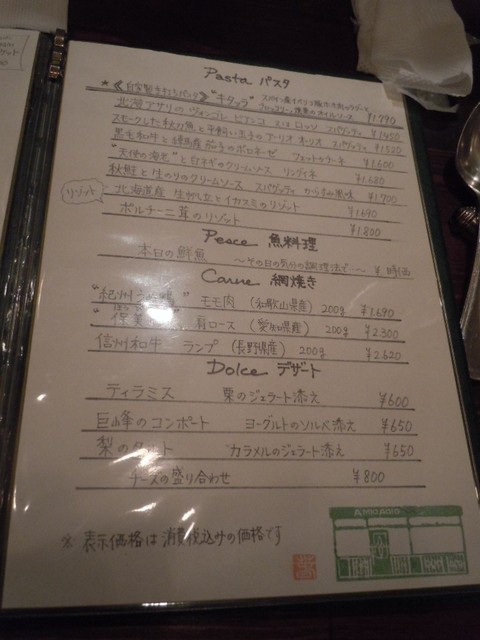 Pasta パスタ
★《自家製手打ちパスタ》 "キタッラ" ¥1,790
北海アサリのヴォンゴレ ビアンコ スパゲッティ ¥1450
スモークした秋刀魚と平飼い玉子のアーリオ オーリオ スパゲッティ ¥1520
黒毛和牛と 茄子のボロネーゼ フェットチーネ ¥1,600
"天使の海老"と白ネギのクリームソース リングイネ ¥1,680
秋鮭と生のりのクリームソース スパゲッティ からすみ風味 ¥1,700
リゾット
北海道産 生うにとイカスミのリゾット ¥1,690
ポルチーニ茸のリゾット ¥1,800
Pesce 魚料理
本日の鮮魚 〜その日の気分の調理法で〜 ¥時価
Carne 網焼き
"紀州 鴨" モモ肉 (和歌山県産) 200g ¥1,690
肩ロース (愛知県産) 200g ¥2,300
信州和牛 ランプ (長野県産) 200g ¥2,620
Dolce デザート
ティラミス 栗のジェラート添え ¥600
巨峰のコンポート ヨーグルトのソルベ添え ¥650
梨のタルト カラメルのジェラート添え ¥650
チーズの盛り合わせ ¥800
※ 表示価格は消費税込みの価格です